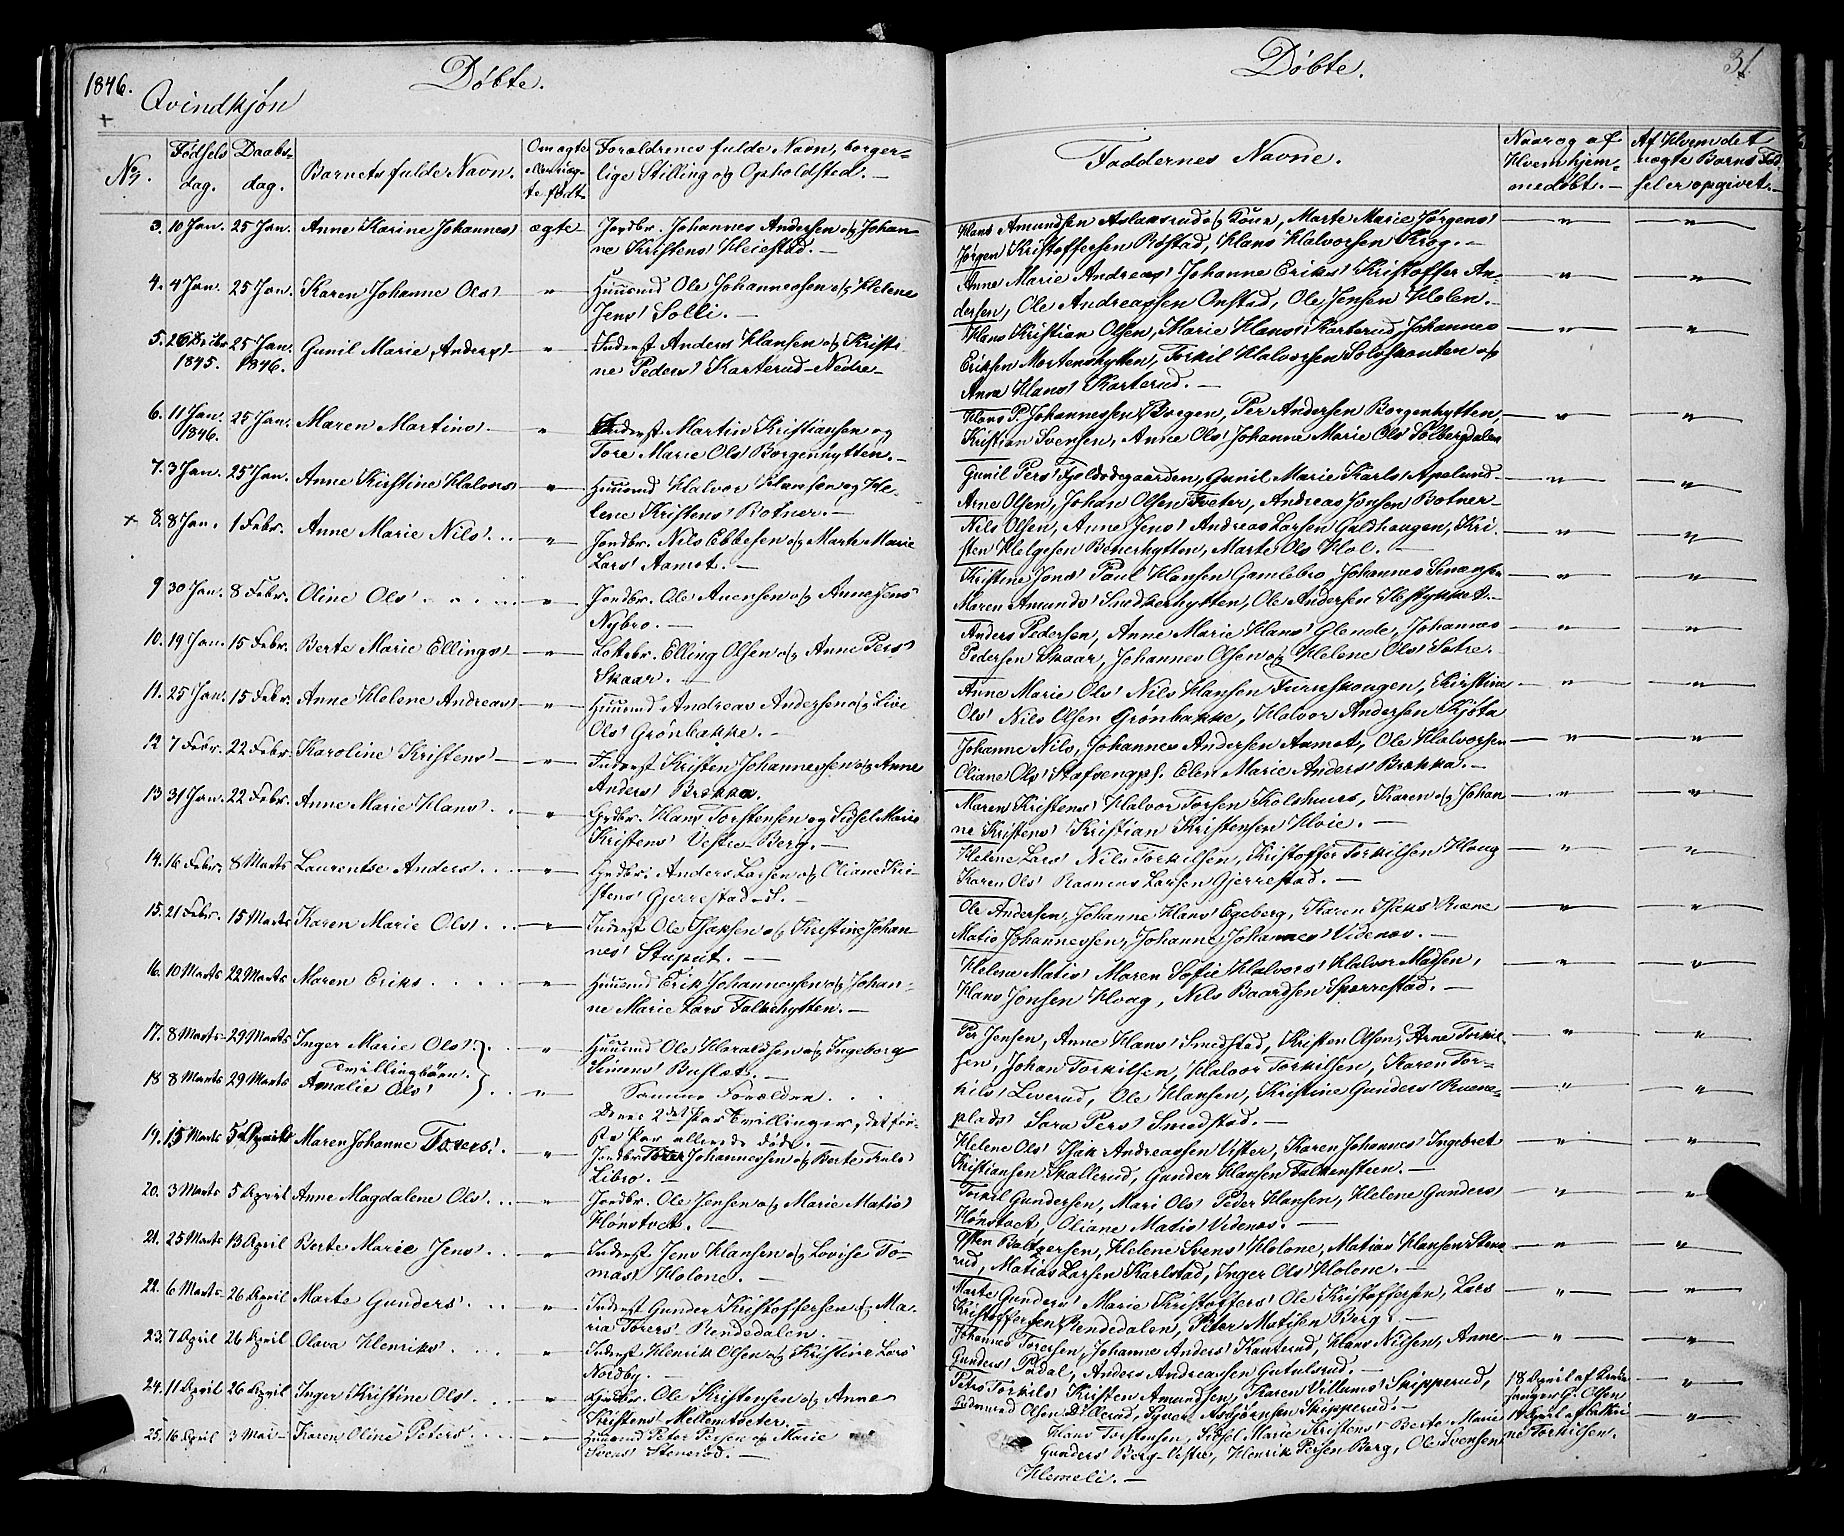 1846.
Døbte.
Qvindkjøn
No. Fødsels dag. Daabs dag. Barnets fulde Navn. Om ægte eller uægte født Forældrenes fulde Navn, borgerlige Stilling og Opholdsted. —
3. 10 Jan. 25 Jan. Anne Karine Johannes' ægte Jordbr. Johannes Andersen og Johan
ne Kristens' Heiestad. —
4. 4 Jan. 25 Jan. Karen Johanne Ols' — " — Huusmd Ole Johannessen og Helene
Jens' Solli. —
5. 26 Decbr. 25 Jan. Gunil Marie Anders' — " — Inderst Anders Hansen og Kristi
1845. 1846. ne Peders' Karterud-Nedre —
6. 11 Jan. 25 Jan. Maren Martins' — " Inderst Martin Kristiansen og
1846. Tore Marie Ols' Borgenhytten. —
7. 3 Jan. 25 Jan. Anne Kirstine Halvors' — " — Huusmd Halvor Hansen og He-
lene Kristens' Botner. —
+ 8. 8 Jan. 1 Febr. Anne Marie Nils' — " — Jordbr. Nils Ebbesen og Marte Marie
Lars' Aamot. —
9 30 Jan. 8 Febr. Oline Ols' — " — Jordbr. Ole Auensen og Anne Jens'
Nybro. —
10. 19 Jan. 15 Febr. Berte Marie Ellings' — " — Elling Olsen og Anne Pers'
Skaar. —
11. 25 Jan. 15 Febr. Anne Helene Andreas' — " — Huusmd Andreas Andersen og Live
Ols' Grønbakke. —
12 7 Febr. 22 Febr. Karoline Kristens' — " — Inderst Kristen Johannessen og Anne
Anders' Brække.
13 31 Jan. 22 Febr. Anne Marie Hans' — " — Hans Torstensen og Sidsel Marie
Kristens' Vestre-Berg. —
14. 16 Febr. 8 Marts Laurentse Anders' — " — Anders Larsen og Oliane Kri-
stens' Gjerrestad
15. 21 Febr. 15 Marts Karen Marie Ols' — " — Inderst Ole Isaksen og Kristine Johan
nes' Stuput. —
16. 10 Marts 22 Marts Maren Eriks — " — Huusmd Erik Johannessen og Johan-
ne Marie Lars Falkehytten. —
17. 8 Marts 29 Marts Inger Marie Ols' — " — Huusmd Ole Haraldsen og Ingeborg
Tvillingbørn. Simens' Buslet. —
18 8 Marts 29 Marts Amalie Ols' — " — Samme Forældre
Denne 2det Par Tvillinger, det før-
ste Par allerede døde. —
19. 15 Marts 5 April Maren Johanne Torers' — " — Jordbr. Torer Johannessen og Berte Truls'
Libro. —
20. 3 Marts 5 April Anne Magdalene Ols' — " — Jordbr. Ole Jensen og Marie Matis'
Hønstvet. —
21. 25 Marts 13 April Berte Marie Jens' — " — Inderst Jens Hansen og Lovise To-
mas' Holone. —
22. 6 Marts 26 April Marte Gunders' — " Inderst Gunder Kristoffersen og Ma-
ria Torers' Rendedalen. —
23. 7 April 26 April Olava Henriks' — " Inderst Henrik Olsen og Kristine Lars'
Nordby. —
24. 11 April 26 April Inger Kristine Ols' — " — Ole Kristensen og Anne
Kristens' Mellemtveter. —
25. 16 April 3 Mai Karen Oline Peters' — " — Huusmd Peter Persen og Marie
Svens' Stenerød. —
Døbte.
31.
Faddernes Navne.
Naar og af Hvem hjemmedøbt. — Af Hvem det uægte Barns Fødsel er opgivet. —
Hans Amundsen Aslaksrud og Kone, Marte Marie Jørgens' — " — — " —
Jørgen Kristoffersen Røstad, Hans Halvorsen Krog. —
Anne Marie Andreas' Johanne Eriks' Kristoffer An- — " — — " —
dersen, Ole Andreassen Onstad, Ole Jensen Holen. —
Hans Kristian Olsen, Marie Hans' Karterud, Johannes — " — — " —
Eriksen Mortenshytten, Torkil Halvorsen Solvskouten og
Anne Hans' Karterud. —
Hans P. Johannessen Borgen, Per Andersen Borgenhytten, — " — — " —
Kristian Svensen, Anne Ols' Johanne Marie Ols' Solbergdalen
Gunil Pers' Fjeldødegaarden, Gunil Marie Karls' Apelund — " — — " —
Arne Olsen, Johan Olsen Tveter, Andreas Jonsen Botner —
Nils Olsen, Anne Jens' Andreas Larsen Guldhaugen, Kri- — " — — " —
sten Helgesen Bonerhytten, Marte Ols' Hol. —
Kristine Jens' Paul Hansen Gamlebro, Johannes Simensen — " — — " —
Maren Amunds' Snedkerhytten, Ole Andersen Elvestykket. —
Anders Pedersen, Anne Marie Hans' Glende, Johannes — " — — " —
Pedersen Skaar, Johannes Olsen og Helene Ols' Sætre. —
Anne Marie Ols' Nils Hansen Furuskougen, Kirstine — " — — " —
Ols' Nils Olsen Grønbakke, Halvor Andersen Kjøta
Johanne Nils, Johannes Andersen Aamot, Ole Halvorsen — " — — " —
Oliane Ols' Elen Marie Anders' Brække. —
Maren Kristens' Halvor Torsen Kolshuus, Karen og Johan — " — — " —
ne Kristens' Kristian Kristensen Hoie. —
Helene Lars' Nils Torkilsen, Kristoffer Torkilsen Houg — " — — " —
Karen Ols' Rasmus Larsen Gjerrestad. —
Ole Andersen, Johanne Hans' Egeberg, Karen Isaks' Ruene — " — — " —
Matis Johannessen, Johanne Johannes' Videnes. —
Helene Matis' Maren Sofie Halvors' Halvor Madsen, — " — — " —
Hans Jonsen Houg, Nils Baardsen Sparrestad. —
Per Jensen, Anne Hans' Smedstad, Kristen Olsen, Arne Torkil- — " — — " —
sen, Johan Torkilsen, Halvor Torkilsen, Karen Tor-
kils' Liverud, Ole Hansen, Kristine Gunders' Ruene- — " — — " —
plads' Sara Pers' Smedstad. —
Helene Ols' Isak Andreassen Vister, Karen Johannes' Ingebret — " — — " —
Kristiansen Skallerud, Gunder Hansen Falkensteen. —
Torkil Gundersen, Mari Ols' Peder Hansen, Helene Gunders' — " — — " —
Hønstvet, Oliane Matis' Videnes. —
Østen Baltzersen, Helene Svens' Holone, Matias Hansen Stene — " — — " —
rud, Matias Larsen Karlstad, Inger Ols' Holone. —
Marte Gunders' Marie Kristoffers' Ole Kristoffersen, Lars — " — — " —
Kristoffersen Rendedalen, Peter Matisen Berg. —
Johannes Torersen, Johanne Anders' Kauterud, Hans Nilsen, Anne — " — — " —
Gunders' Anders Andreassen Gutulsrud. —
Petro Torkils' Kristen Amundsen, Karen Villums' Skipperud, 18 April af Kirke — " —
Gudmund Olsen Dillerud, Syver Asbjørnsen Skipperud. — sanger G. Olsen
Hans Torstensen, Sidsel Marie Kristens' Berte Marie 17 April af Katri — " —
Gunders' Berg-Vestre, Henrik Persen Berg, Ole Svensen ne Torkilsen.
Hemeli. —